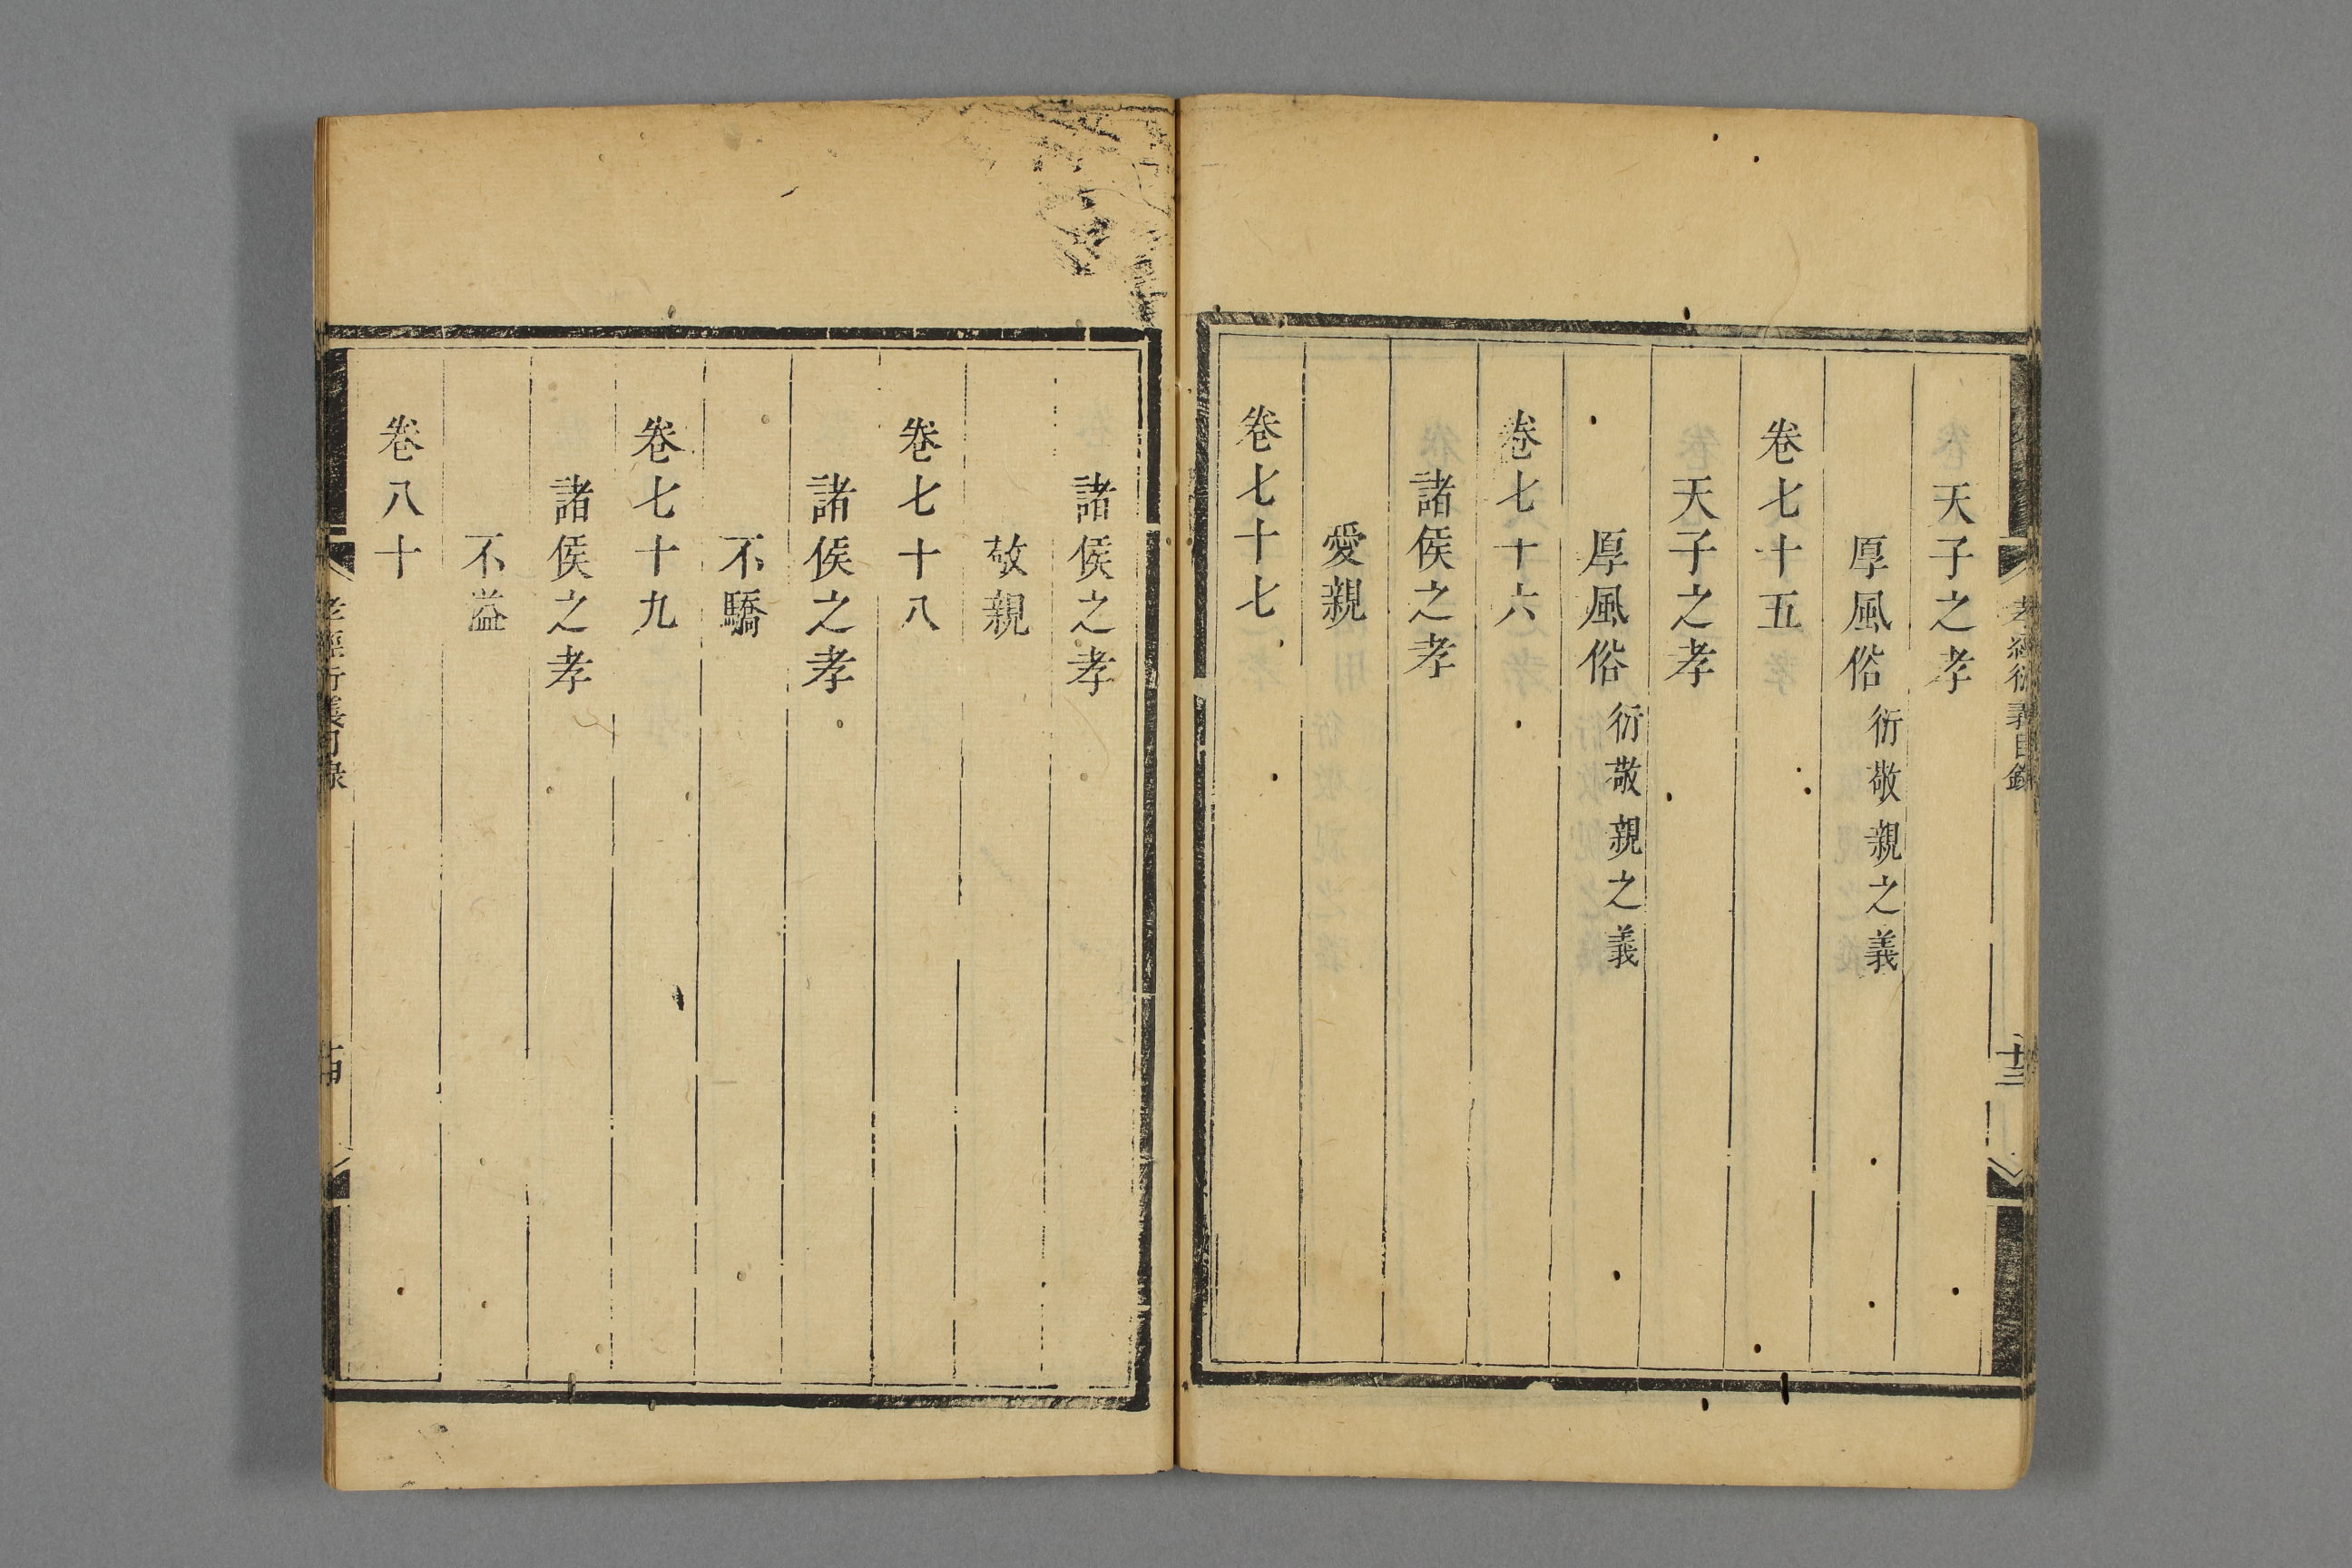 孝經衍義目錄
十三
天子之孝
厚風俗衍敬親之義
卷七十五
天子之孝
厚風俗衍敬親之義
卷七十六
諸侯之孝
愛親
卷七十七
諸侯之孝
敬親
卷七十八
諸侯之孝
不驕
卷七十九
諸侯之孝
不溢
卷八十
孝經衍義目錄